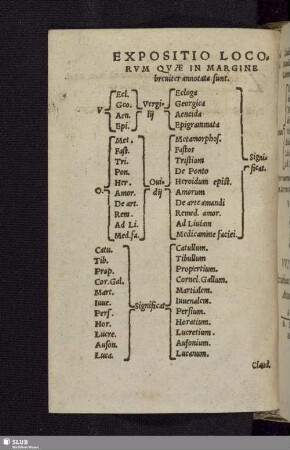 EXPOSITIO LOCO,
RVM QVÆ IN MARGINE
breuiter annotata sunt.
V Ecl. Vergi- Ecloga
Geo. lij Georgica
Aen. Aeneida
Epi. Epigrammata
O. Met. Oui- Metamorphos. Signi-
Fast. dij Fastos ficat.
Tri. Tristium
Pon. De Ponto
Her. Heroidum epist.
Amor. Amorum
De art. De arte amandi
Rem. Remed. amor.
Ad Li. Ad Liuiam
Med. fa. Medicamine faciei.
Catu. Significat Catullum.
Tib. Tibullum
Prop. Propertium.
Cor. Gal. Cornel. Gallum.
Mart. Martialem.
Iuu. Iuuenalem.
Pers. Persium.
Hor. Horatium.
Lucre. Lucretium.
Auson. Ausonium.
Luca. Lucanum.
Claud.
SLUB